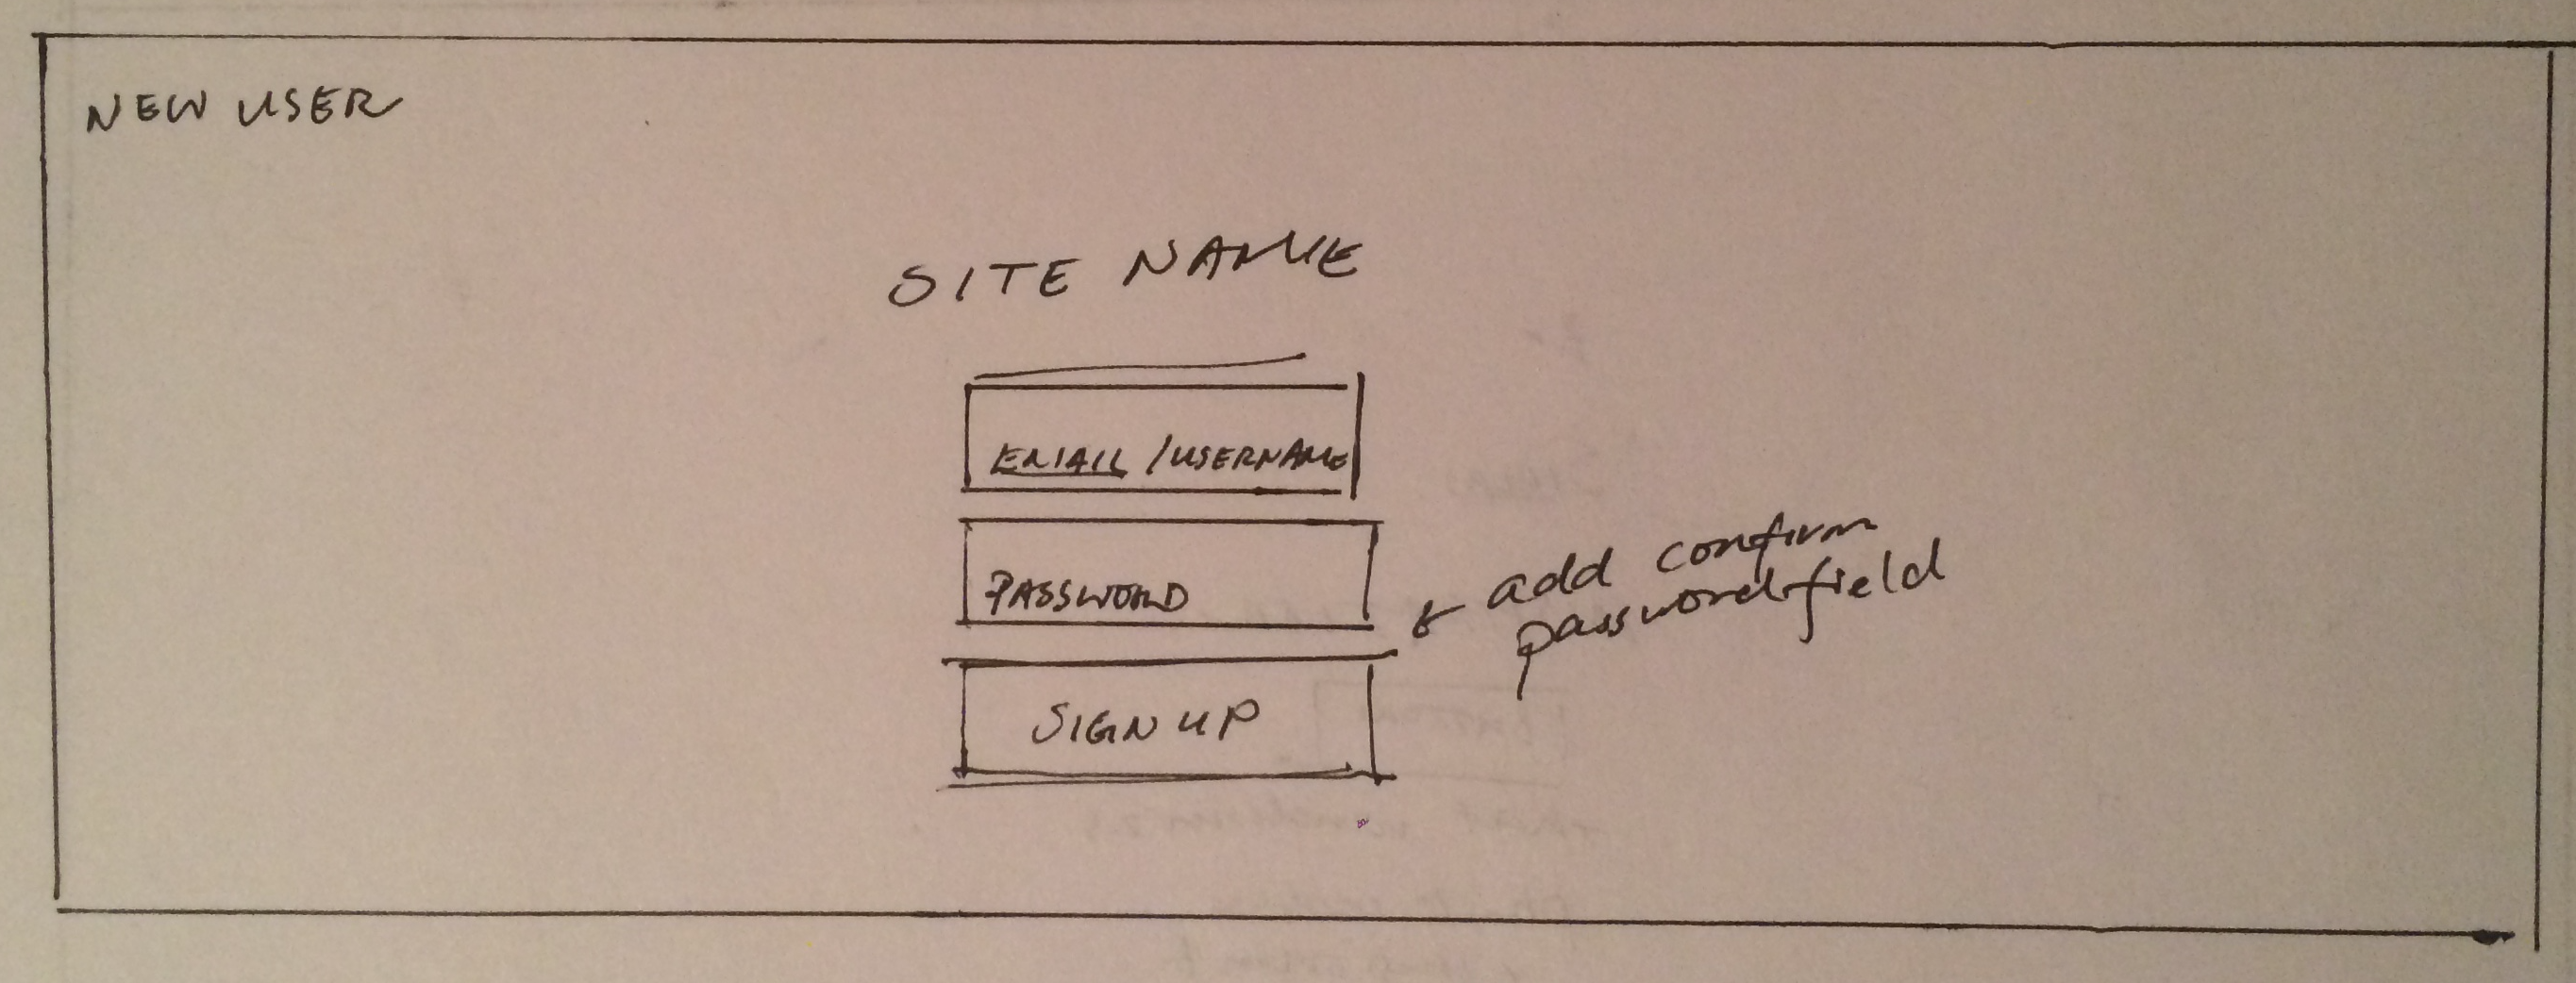 NEW USER
SITE NAME
EMAIL /USERNAME
PASSWORD
add confirm
password field
SIGN UP